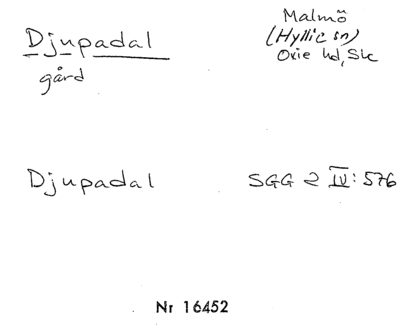 Djupadal
gård
Malmö
(Hyllie sn)
Oxie hd, Sk
Djupadal
SGG 2 IV: 576
Nr 16452